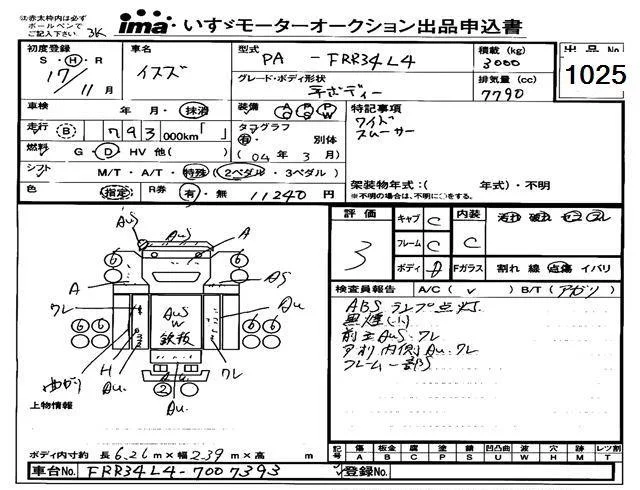 注赤太枠内は必ず
ボールペンで
ご記入下さい。 3K
ima いすゞモーターオークション出品申込書
初度登録 車名 型式 PA - FRR34L4 積載 (kg) 3000 出品No
S・H・R 17/11月 イスズ グレード・ボディ形状 平ボディー 排気量 (cc) 7790 1025
車検 年 月・抹消 装備 AC PS PW 特記事項
走行 B 793 000km「 」 タコグラフ 有・ 別体 ワイド
燃料 G・D・HV 他( ) (04年 3月) スムーサー
シフト M/T・A/T・特殊 (2ペダル・3ペダル) 架装物年式:( 年式)・不明
色 指定 R券 有・無 11240円 ※不明の場合は、不明に○をする。
評価 3 キャブ C 内装 C
フレーム C
ボディ D Fガラス 割れ 線 点傷 イバリ
検査員報告 A/C( v ) B/T(アガリ)
ABS ランプ点灯
黒煙(小)
前主AuS.ワレ
アオリ内側Au.ワレ
フレーム一部S
AuS A
6 6
A AS
ワレ AuS W 鉄板 Au
6 6 6 6
H ワレ
曲がり Au. Au.
2 Au.
上物情報
ボディ内寸約 長6.26m×幅2.39m×高 m
記号 傷 板金 腐 塗 錆 凹凸曲 波 穴 跡 レツ割
A B C P S U W H M T
車台No. FRR34L4-7007393 登録No.